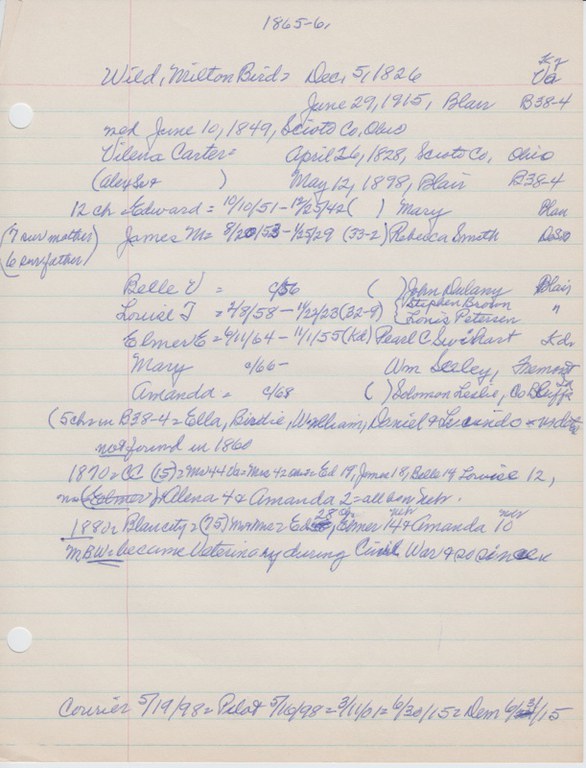 1865-6,
Ky
Wild, Milton Bird = Dec, 5, 1826 Va
June 29, 1915, Blair B38-4
med June 10, 1849, Scioto Co, Ohio
Vilena Carter = April 26, 1828, Scioto Co, Ohio
(Alex Sr + ) May 12, 1898, Blair B38-4
12 ch Edward = 10/10/51 - 12/25/42 ( ) Mary Blair
(7 sur mother) James M = 8/20/53 - 1/25/29 (33-2) Rebecca Smith
(6 sur father)
Belle V = c/56 ( ) John Dulany Blair
Stephen Brown
Louise T = 2/8/58 - 11/22/23 (32-9) Louis Petersen "
Elmer E = 6/11/64 - 11/1/55 (Kd) Pearl C Swihart Kdn
Mary c/66 - Wm Seeley, Fremont
Amanda = c/68 ( ) Solomon Leslie, Co Bluffs Ia
(5 ch in B38-4 = Ella, Birdie, William, Daniel &
not found in 1860
1870 = CC (15) = Ed 19, James 18, Belle 14 Louise 12,
no (Elmer) Alena 4 & Amanda 2 = all born Nebr.
28 Oh nebr neb
1880 = Blair city = (75) = Ed, Elmer 14 & Amanda 10
MBW = became Veterinary during Civil War & so since
Courier 5/19/98 = Pilot 5/19/98 = 3/11/01 = 6/30/15 = Dem 6/31/15